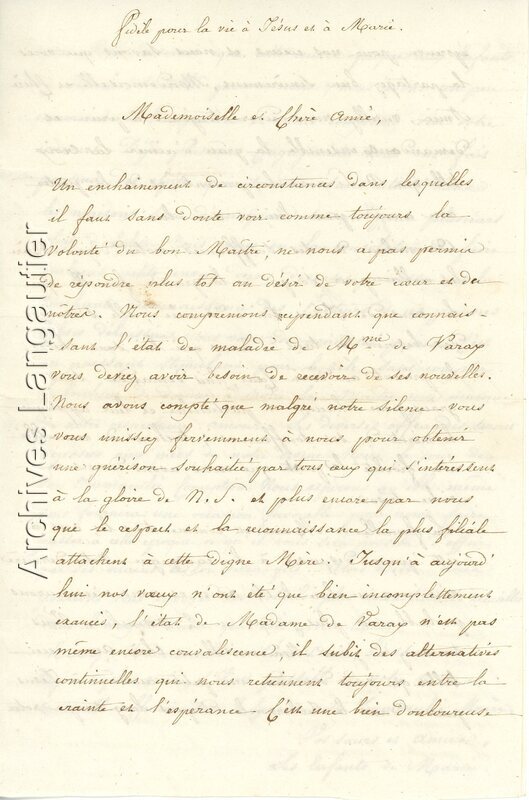 Fidèle pour la vie à Jésus et à Marie.
Mademoiselle et Chère amie,
Un enchainement de circonstances dans lesquelles
il faut sans doute voir comme toujours la
volonté du bon Maître, ne nous a pas permis
de répondre plus tôt au désir de votre cœur et du
nôtre. Nous comprenions cependant que connais-
sant l'état de maladie de Mme de Varax
vous deviez avoir besoin de recevoir de ses nouvelles.
Nous avons compté que malgré notre silence vous
vous unissiez fervemment à nous pour obtenir
une guérison souhaitée par tous ceux qui s'intéressent
à la gloire de N. S. et plus encore par nous
que le respect et la reconnaissance la plus filiale
attachent à cette digne Mère. Jusqu'à aujourd'
hui nos vœux n'ont été que bien incomplettement
exaucés, l'état de Madame de Varax n'est pas
même encore convalescence, il subit des alternatives
continuelles qui nous retiennent toujours entre la
crainte et l'espérance. C'est une bien douloureuse
Archives Langautier